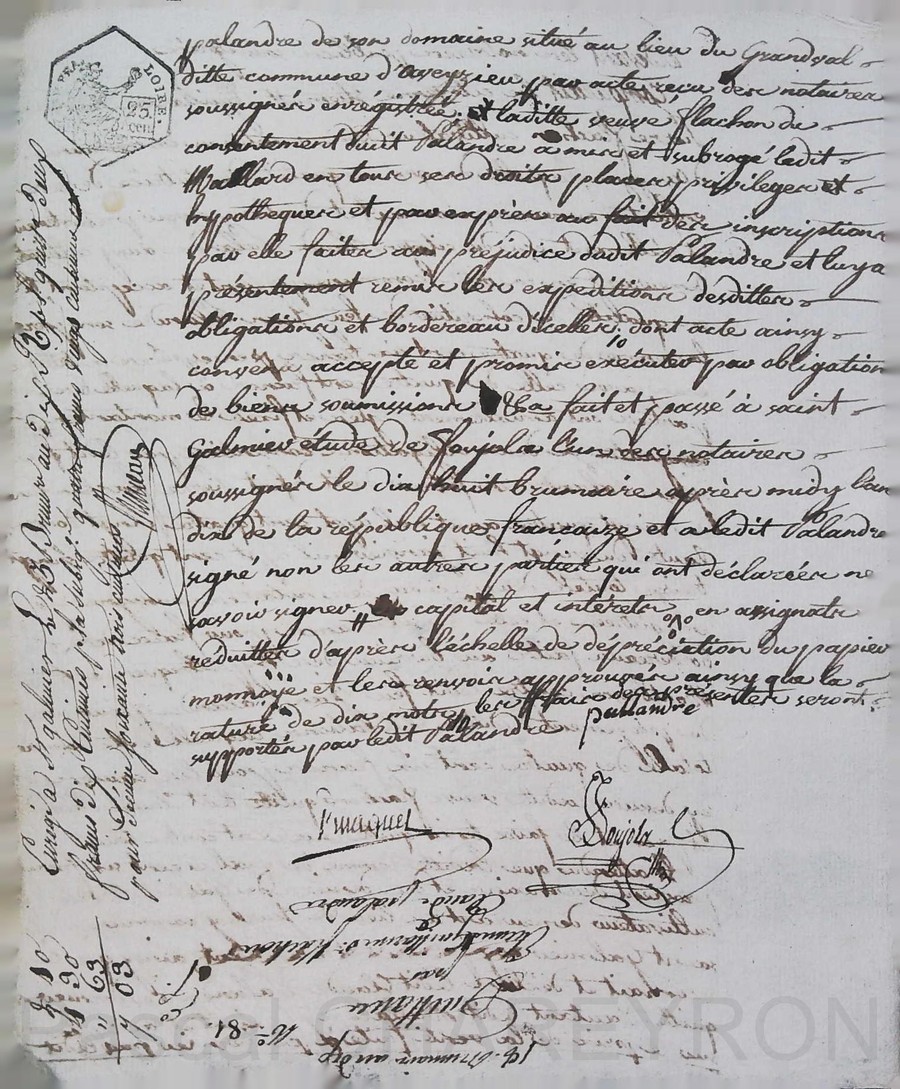 palandre de son domaine situé au lieu du Grandval
ditte commune d'aveyzieu par acte recu des notaires
soussignés enregistré. et laditte veuve flachon du
consentement dudit Palandre a mis et subrogé ledit
Maillard en tous ses droits places privileges et
hypotheques et par exprès au fait des inscriptions
par elle faites au préjudice dudit Palandre et luy a
présentement remis les expeditions desdittes
obligations et bordereau d'icelles. dont acte ainsy
convenu accepté et promis exécuter par obligation
de biens soumissions fait et passé à saint
Galmier étude de Joujola l'un des notaires
soussignés le dix huit brumaire après midy l'an
dix de la république francaize et a ledit Palandre
signé non les autres parties qui ont déclarées ne
savoir signer. capital et intérets en assignats
réduittes d'après l'échelle de dépréciation du papier
monnoye et les renvois approuvés ainsy que la
rature de dix mots les fraix des présentes seront
supportés par ledit Palandre
pallandre
Joujola
LOIRE.
25
cen.
Enregé à St galmier le 23 Brumre an dix
francs dix centimes pr la subrogn quatre francs
pour décime soixante trois centimes
2 10
4 30
" 63
7 03
Claude palandre
par
quittance
18 Brumaire an dix
No 81.
Pascal CHAREYRON